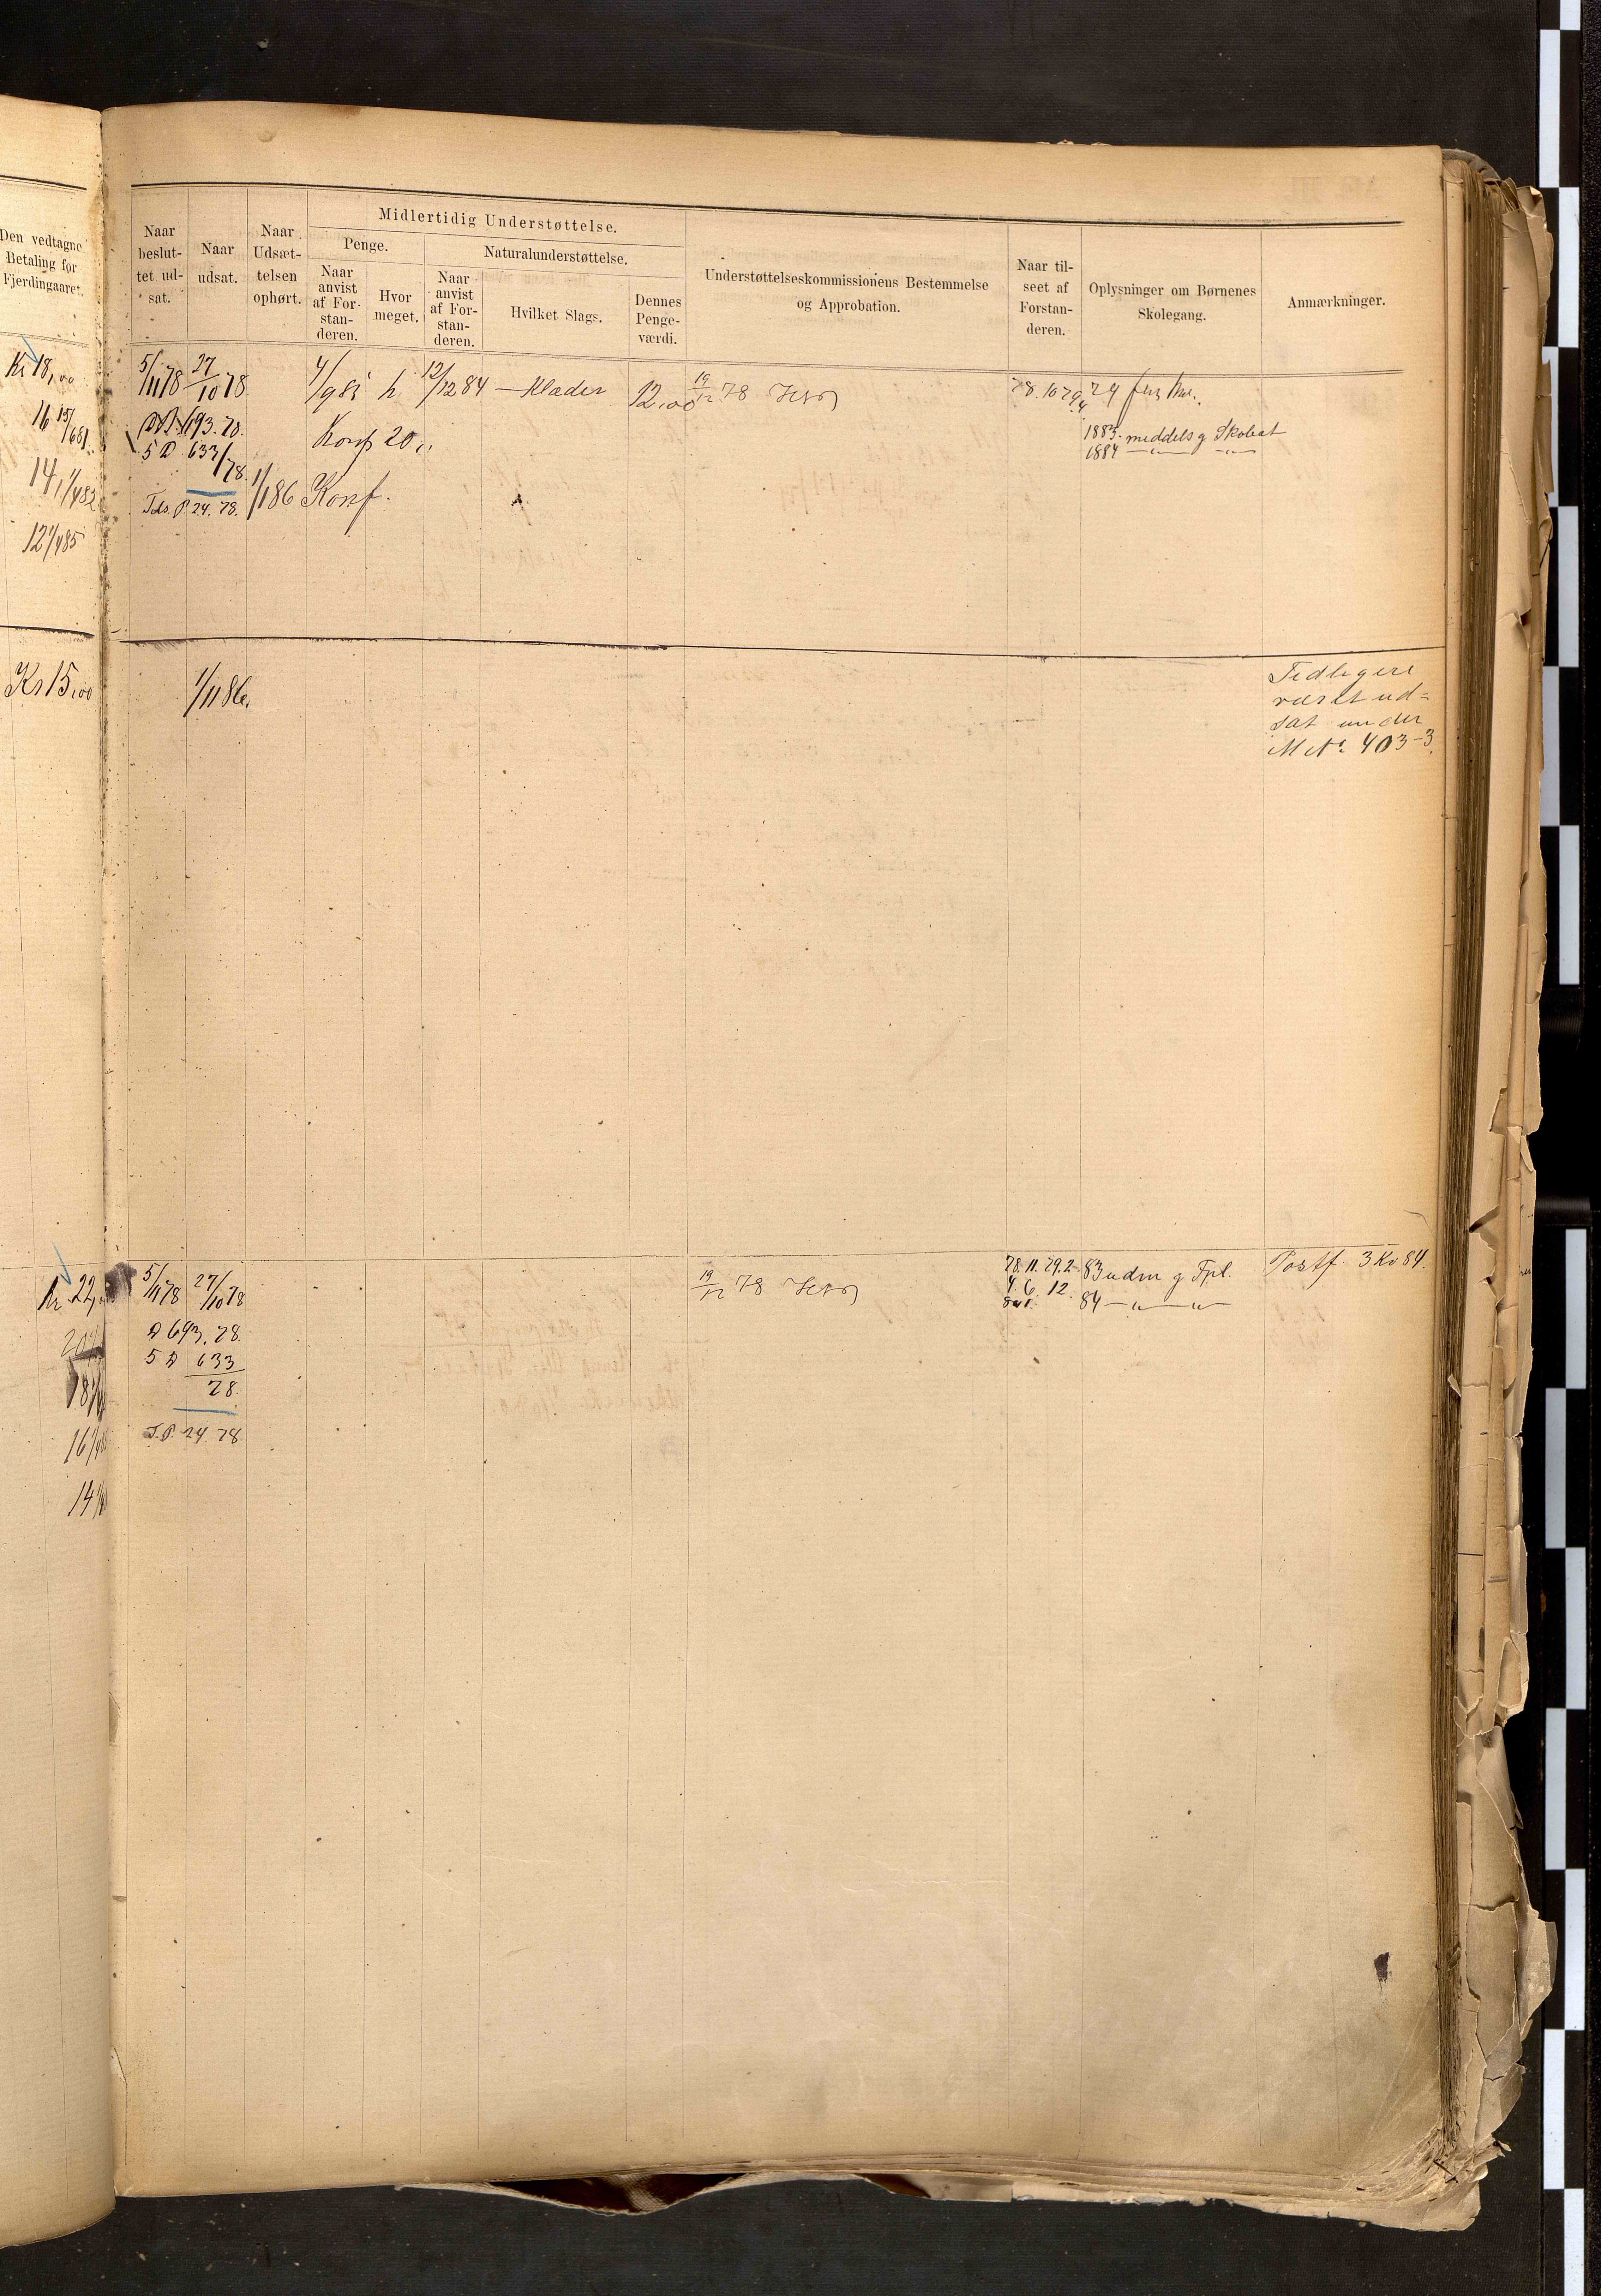 Den vedtagne
Betaling for
Fjerdingaaret.
Naar
beslut-
tet ud-
sat.
Naar
udsat.
Naar
Udsæt-
telsen
ophørt.
Midlertidig Understøttelse.
Penge.
Naar
anvist
af For-
stan-
deren.
Hvor
meget.
Naturalunderstøttelse.
Naar
anvist
af For-
stan-
deren.
Hvilket Slags.
Dennes
Penge-
værdi.
Understøttelseskommissionens Bestemmelse
og Approbation.
Naar til-
seet af
Forstan-
deren.
Oplysninger om Børnenes
Skolegang.
Anmærkninger.
Kr 18,00
16 15/6 81
14 1/4 82
12 1/4 85
5/11 78
27/10 78
693.78.
5 D 633/78.
Tds. P. 24. 78.
1/1 86 Konf.
4/9 85
Konf 20
12/12 84
Klæder
12,00
19/12 78
78.10 79.4
79
1883. middels g Skolbest
1884 — " — — " —
Kr 15,00
1/11 86.
Tidligere
været ud-
sat under
M No 403-3.
Kr. 22,
5/11 78
27/10 78
D 693.78.
5 D 633
78.
T.P. 24. 78.
16 1/4
14
19/12 78
78.11. 79.2
4. 6. 12.
83 udm g Fpl.
84 — " — " —
Postf. 3 Kv 84.